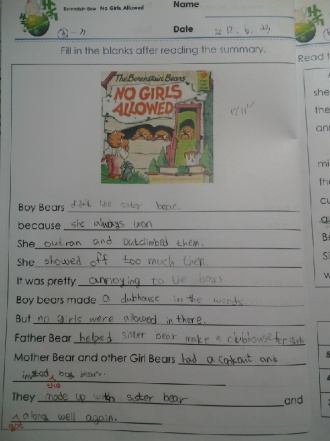 Berenstain Bear No Girls Allowed
Name
Date
Fill in the blanks after reading the summary.
The Berenstain Bears
NO GIRLS ALLOWED
Boy Bears didn't like sister bear.
because she always won
She outran and outclimbed them.
She showed off too much then.
It was pretty annoying to the bears
Boy bears made a clubhouse in the woods
But no girls were allowed in there.
Father Bear helped sister bear make a clubhouse for girls
Mother Bear and other Girl Bears had a cookout and
invited boy bears.
They made up with sister bear and
got along well again.
Read t